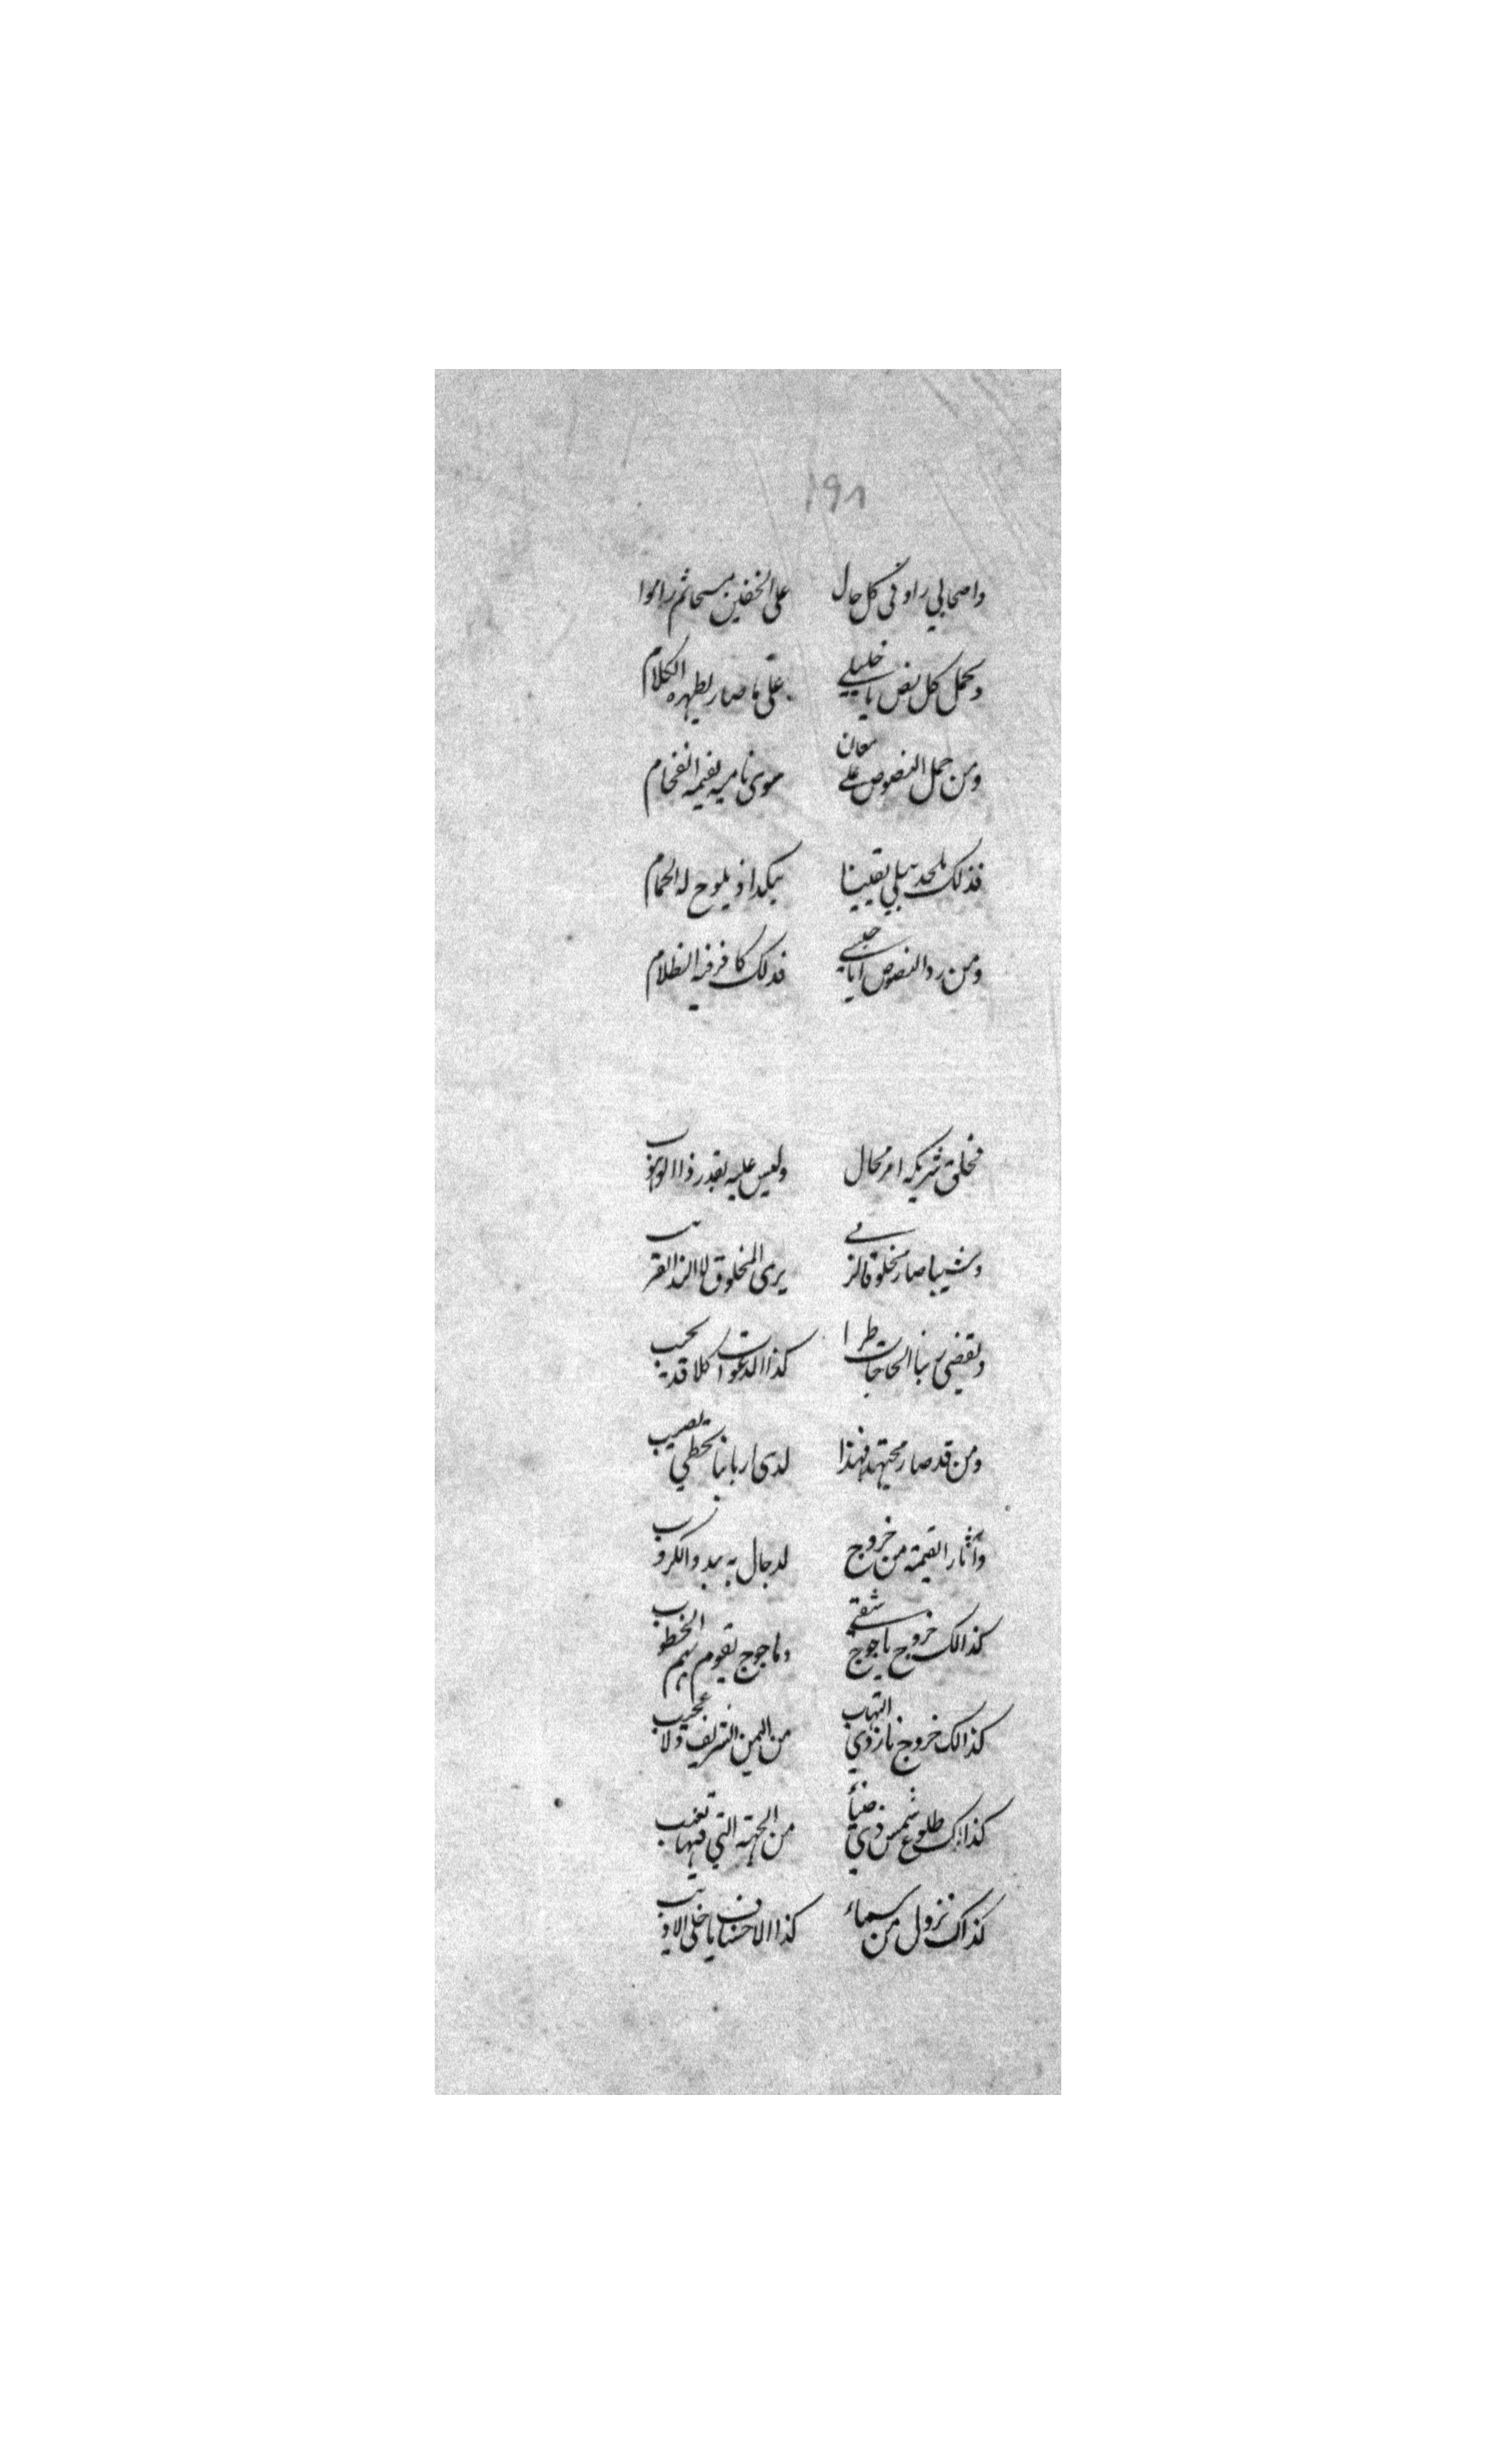 ١٩٨
واصحابي راو في كل حال على الخفين مسحا ثم راموا
ويحمل كل نص يا خليلي على ما صار يظهره الكلام
ومن حمل النصوص على معان الفخام
فذلك ملحد يبلى يقينا اذ يلوح له الحمام
ومن رد النصوص فذلك كافر فيه الظلام
فخلق شريكه امر محال وليس عليه يقدر ذا الوهوب
وشيبا صار مخلوقا يرى المخلوق
ويقضي ربنا الحاجات طرا كذا الدعوات كلا قد يجيب
ومن قد صار مجتهدا فهذا لدى اربابنا يخطي يصيب
وآثار القيمة من خروج لدجال به يبدو الكروب
كذالك خروج ياجوج شقي وماجوج يقوم بهم الخطوب
كذالك خروج نار ذي التهاب من اليمن الشريف ولا عجيب
كذاك طلوع شمس ذي ضياء من الجهة التي فيها تغيب
كذاك نزول من سماء كذا الاخساف يا خلي الاديب